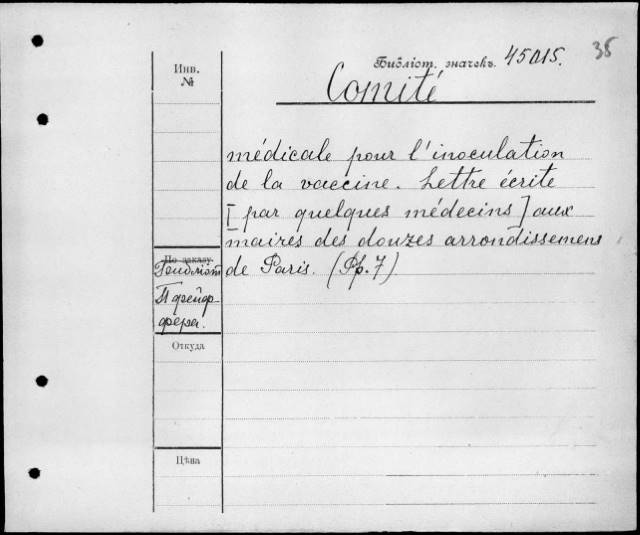 38
Библіот. значекъ. 45015.
Comité
Инв.
№
médicale pour l'inoculation
de la vaccine. Lettre écrite
[par quelques médecins] aux
maires des douzes arrondissemens
de Paris. (Pp. 7)
По заказу
Пфейф-
фера.
Откуда
Цѣна